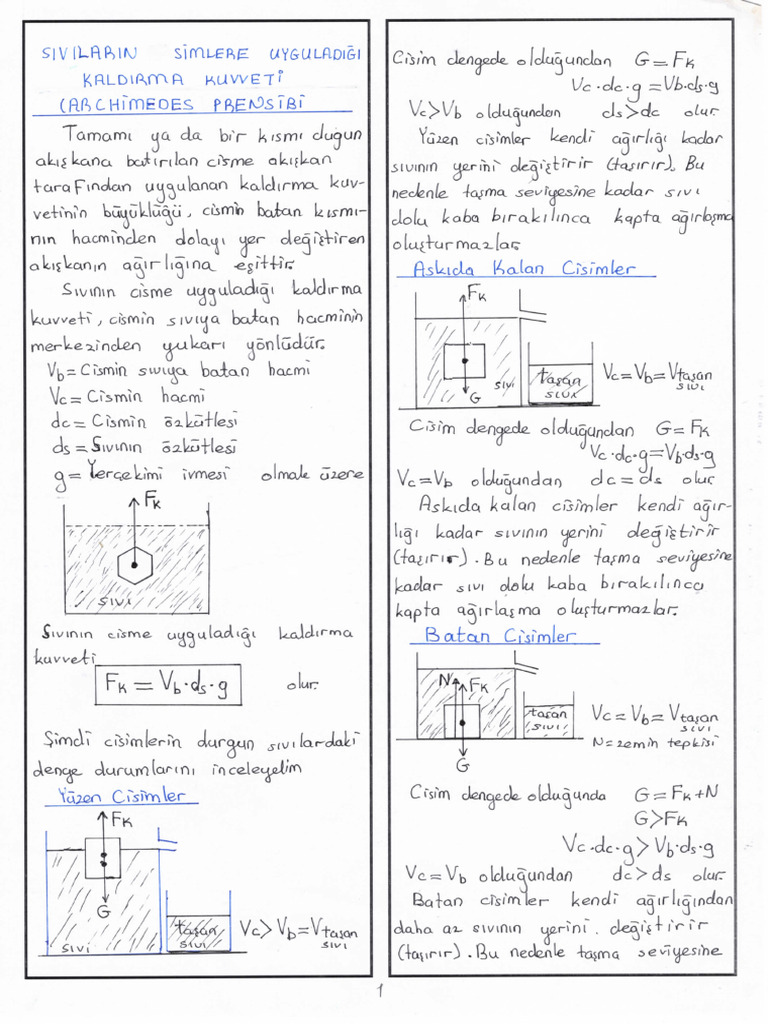 SIVILARIN SİMLERE UYGULADIĞI
KALDIRMA KUVVETİ
(ARCHİMEDES PRENSİBİ
Tamamı ya da bir kısmı dugun
akışkana batırılan cisme akışkan
tarafından uygulanan kaldırma kuv-
vetinin büyüklüğü, cismin batan kısmı-
nın hacminden dolayı yer değiştiren
akışkanın ağırlığına eşittir.
Sıvının cisme uyguladığı kaldırma
kuvveti, cismin sıvıya batan hacminin
merkezinden yukarı yönlüdür.
Vb = Cismin sıvıya batan hacmi
Vc = Cismin hacmi
dc = Cismin özkütlesi
ds = Sıvının özkütlesi
g = Yerçekimi ivmesi olmak üzere
FK
SIVI
Sıvının cisme uyguladığı kaldırma
kuvveti
FK = Vb·ds·g olur.
Şimdi cisimlerin durgun sıvılardaki
denge durumlarını inceleyelim
Yüzen Cisimler
FK
G
SIVI
taşan
SIVI
Vc > Vb = Vtaşan
SIVI
Cisim dengede olduğundan G = FK
Vc·dc·g = Vb·ds·g
Vc > Vb olduğundan ds > dc olur.
Yüzen cisimler kendi ağırlığı kadar
sıvının yerini değiştirir (taşırır). Bu
nedenle taşma seviyesine kadar sıvı
dolu kaba bırakılınca kapta ağırlaşma
oluşturmazlar.
Askıda Kalan Cisimler
FK
G
SIVI
taşan
SIVI
Vc = Vb = Vtaşan
SIVI
Cisim dengede olduğundan G = FK
Vc·dc·g = Vb·ds·g
Vc = Vb olduğundan dc = ds olur.
Askıda kalan cisimler kendi ağır-
lığı kadar sıvının yerini değiştirir
(taşırır). Bu nedenle taşma seviyesine
kadar sıvı dolu kaba bırakılınca
kapta ağırlaşma oluşturmazlar.
Batan Cisimler
N
FK
G
taşan
SIVI
Vc = Vb = Vtaşan
SIVI
N = zemin tepkisi
Cisim dengede olduğunda G = FK + N
G > FK
Vc·dc·g > Vb·ds·g
Vc = Vb olduğundan dc > ds olur.
Batan cisimler kendi ağırlığından
daha az sıvının yerini değiştirir
(taşırır). Bu nedenle taşma seviyesine
1